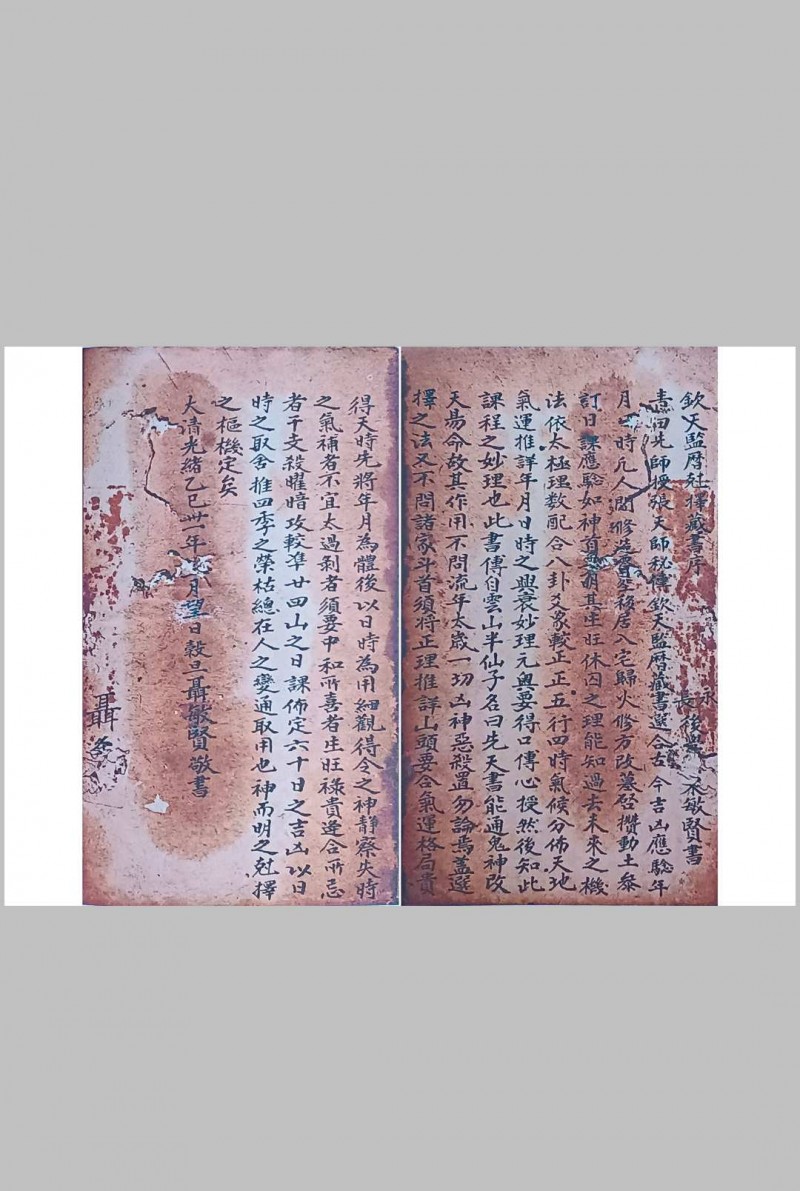 欽天監曆尅擇藏書序
永
長後學 敏賢書
先師授張天師秘傳欽天監曆藏書選合古今吉凶應騐年
月 時凡人間修造 移居入宅歸火修方改墓啓攢動土叅
訂日課應騐如神首 明其生旺休囚之理能知過去未來之機
法依太極理数配合八卦爻象較正正五行四時氣候分佈天地
氣運推詳年月日時之興衰妙理元奥要得口傳心授然後知此
課程之妙理也此書傳自雲山半仙子名曰先天書能通鬼神改
天昜命故其作用不問流年太歲一切凶神惡殺置勿論焉蓋選
擇之法又不問諸家斗首須将正理推詳山頭要合氣運格局貴
得天時先將年月為體後以日時為用細觀得令之神静察失時
之氣補者不宜太過剝者須要中和所喜者生旺禄貴逢合所忌
者干支殺曜暗攻較準廿四山之日課佈定六十日之吉凶以日
時之取舍推四季之榮枯總在人之變通取用也神而明之尅擇
之樞機定矣
大清光緒乙巳卅一年 月望日穀旦聶敏賢敬書
聶